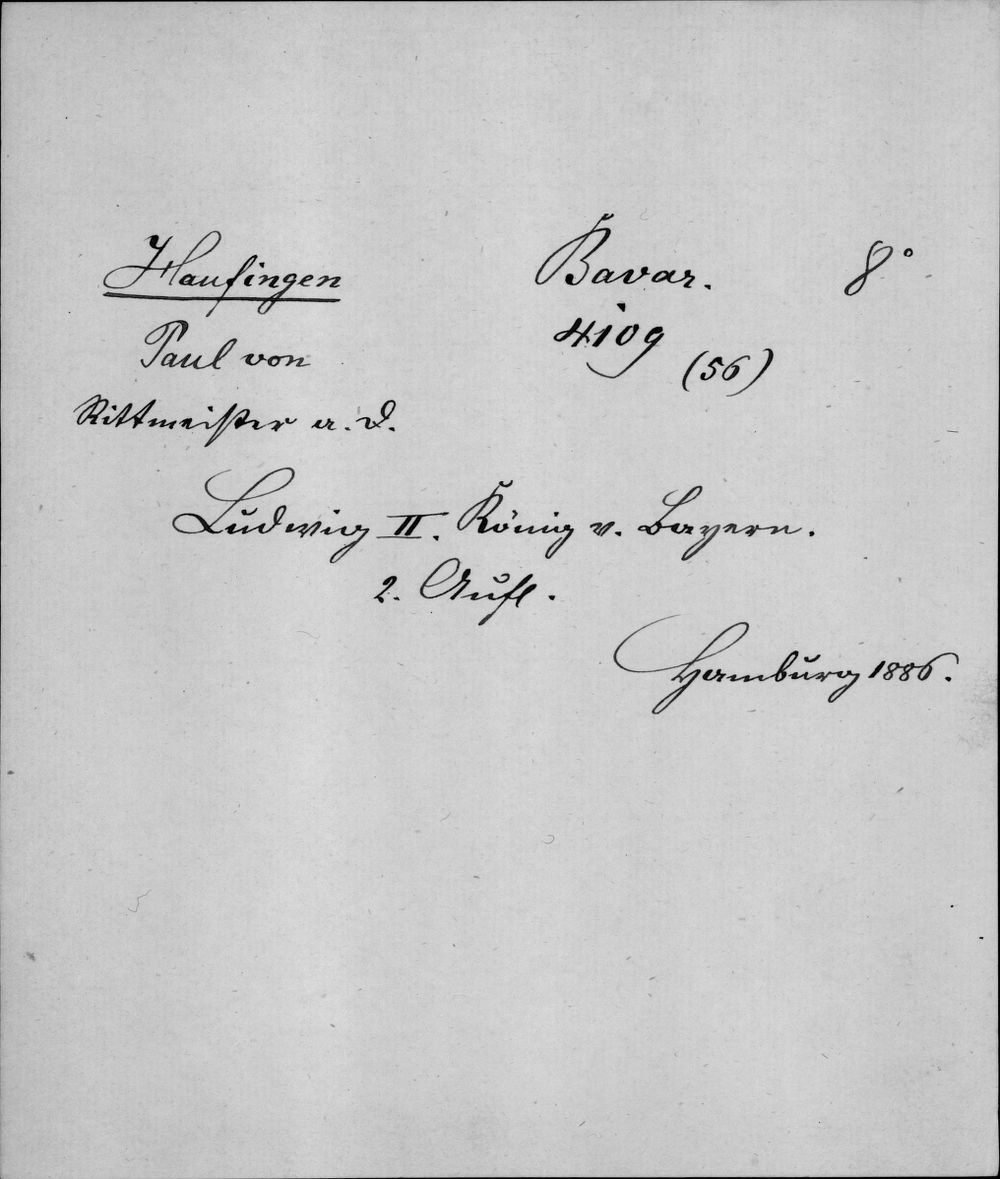 Haufingen
Bavar. 8°
4109
(56)
Paul von
Rittmeister a. D.
Ludwig II. König v. Bayern.
2. Aufl.
Hamburg 1886.